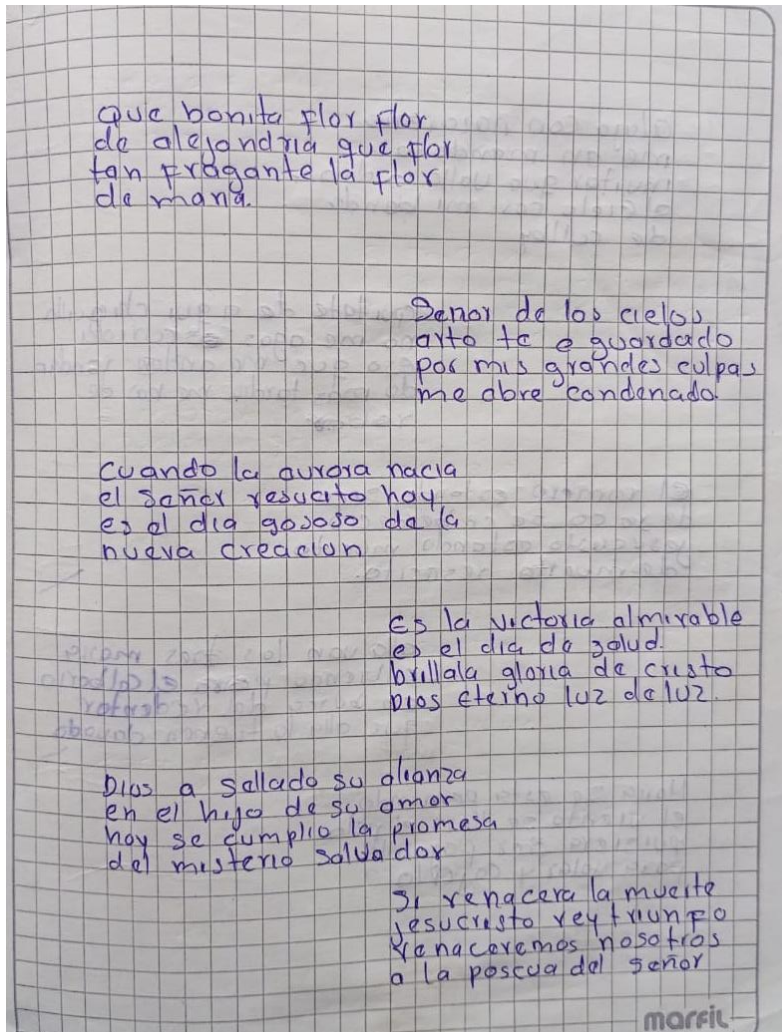 que bonita flor flor
de alejandria que flor
tan fragante la flor
de maria.
Señor de los cielos
arto te e guardado
por mis grandes culpas
me abre condenado.
cuando la aurora nacia
el Señor resucito hay
es el dia gososo de la
nueva creacion
Es la victoria almirable
es el dia de salud.
brillala gloria de cristo
Dios eterno luz de luz.
Dios a sellado su alianza
en el hijo de su amor
hoy se cumplio la promesa
del misterio salvador
Si renacera la muerte
jesucristo rey triunfo
renaceremos nosotros
a la pascua del señor
marfil